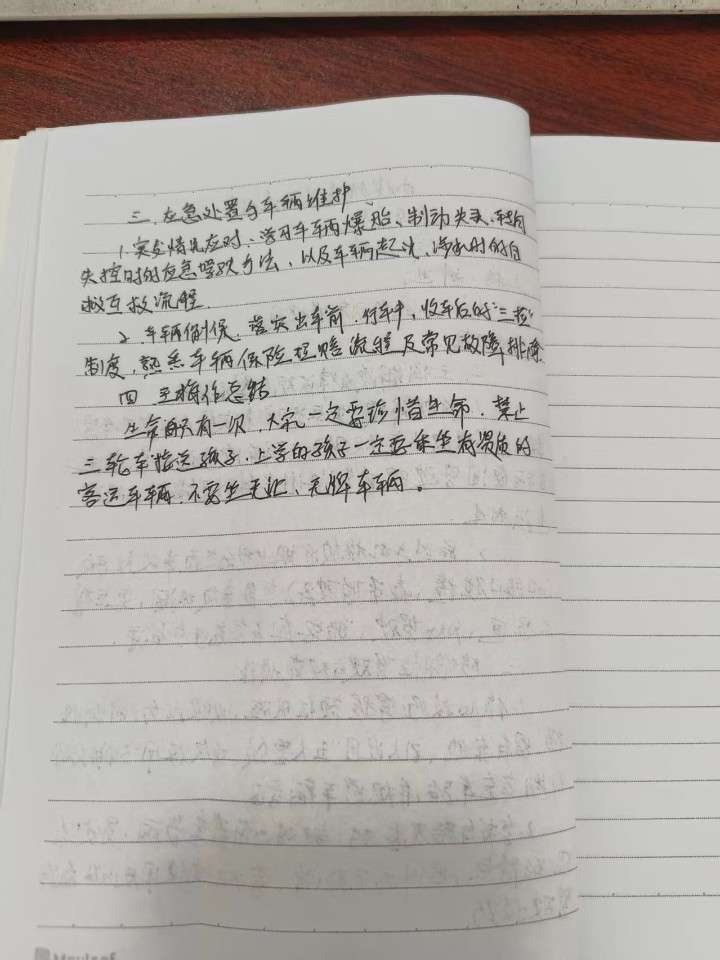 三、应急处置与车辆维护
1.突发情况应对：学习车辆爆胎、制动失灵、转向
失控时的应急驾驶方法，以及车辆起火、涉水时的自
救互救流程.
2、车辆例保，落实出车前、行车中，收车后的"三检"
制度，熟悉车辆保险理赔流程及常见故障排除.
四 主持作总结
生命只有一次，大家一定要珍惜生命，禁止
三轮车接送孩子，上学的孩子一定要乘坐有资质的
客运车辆，不要坐无证、无牌车辆。